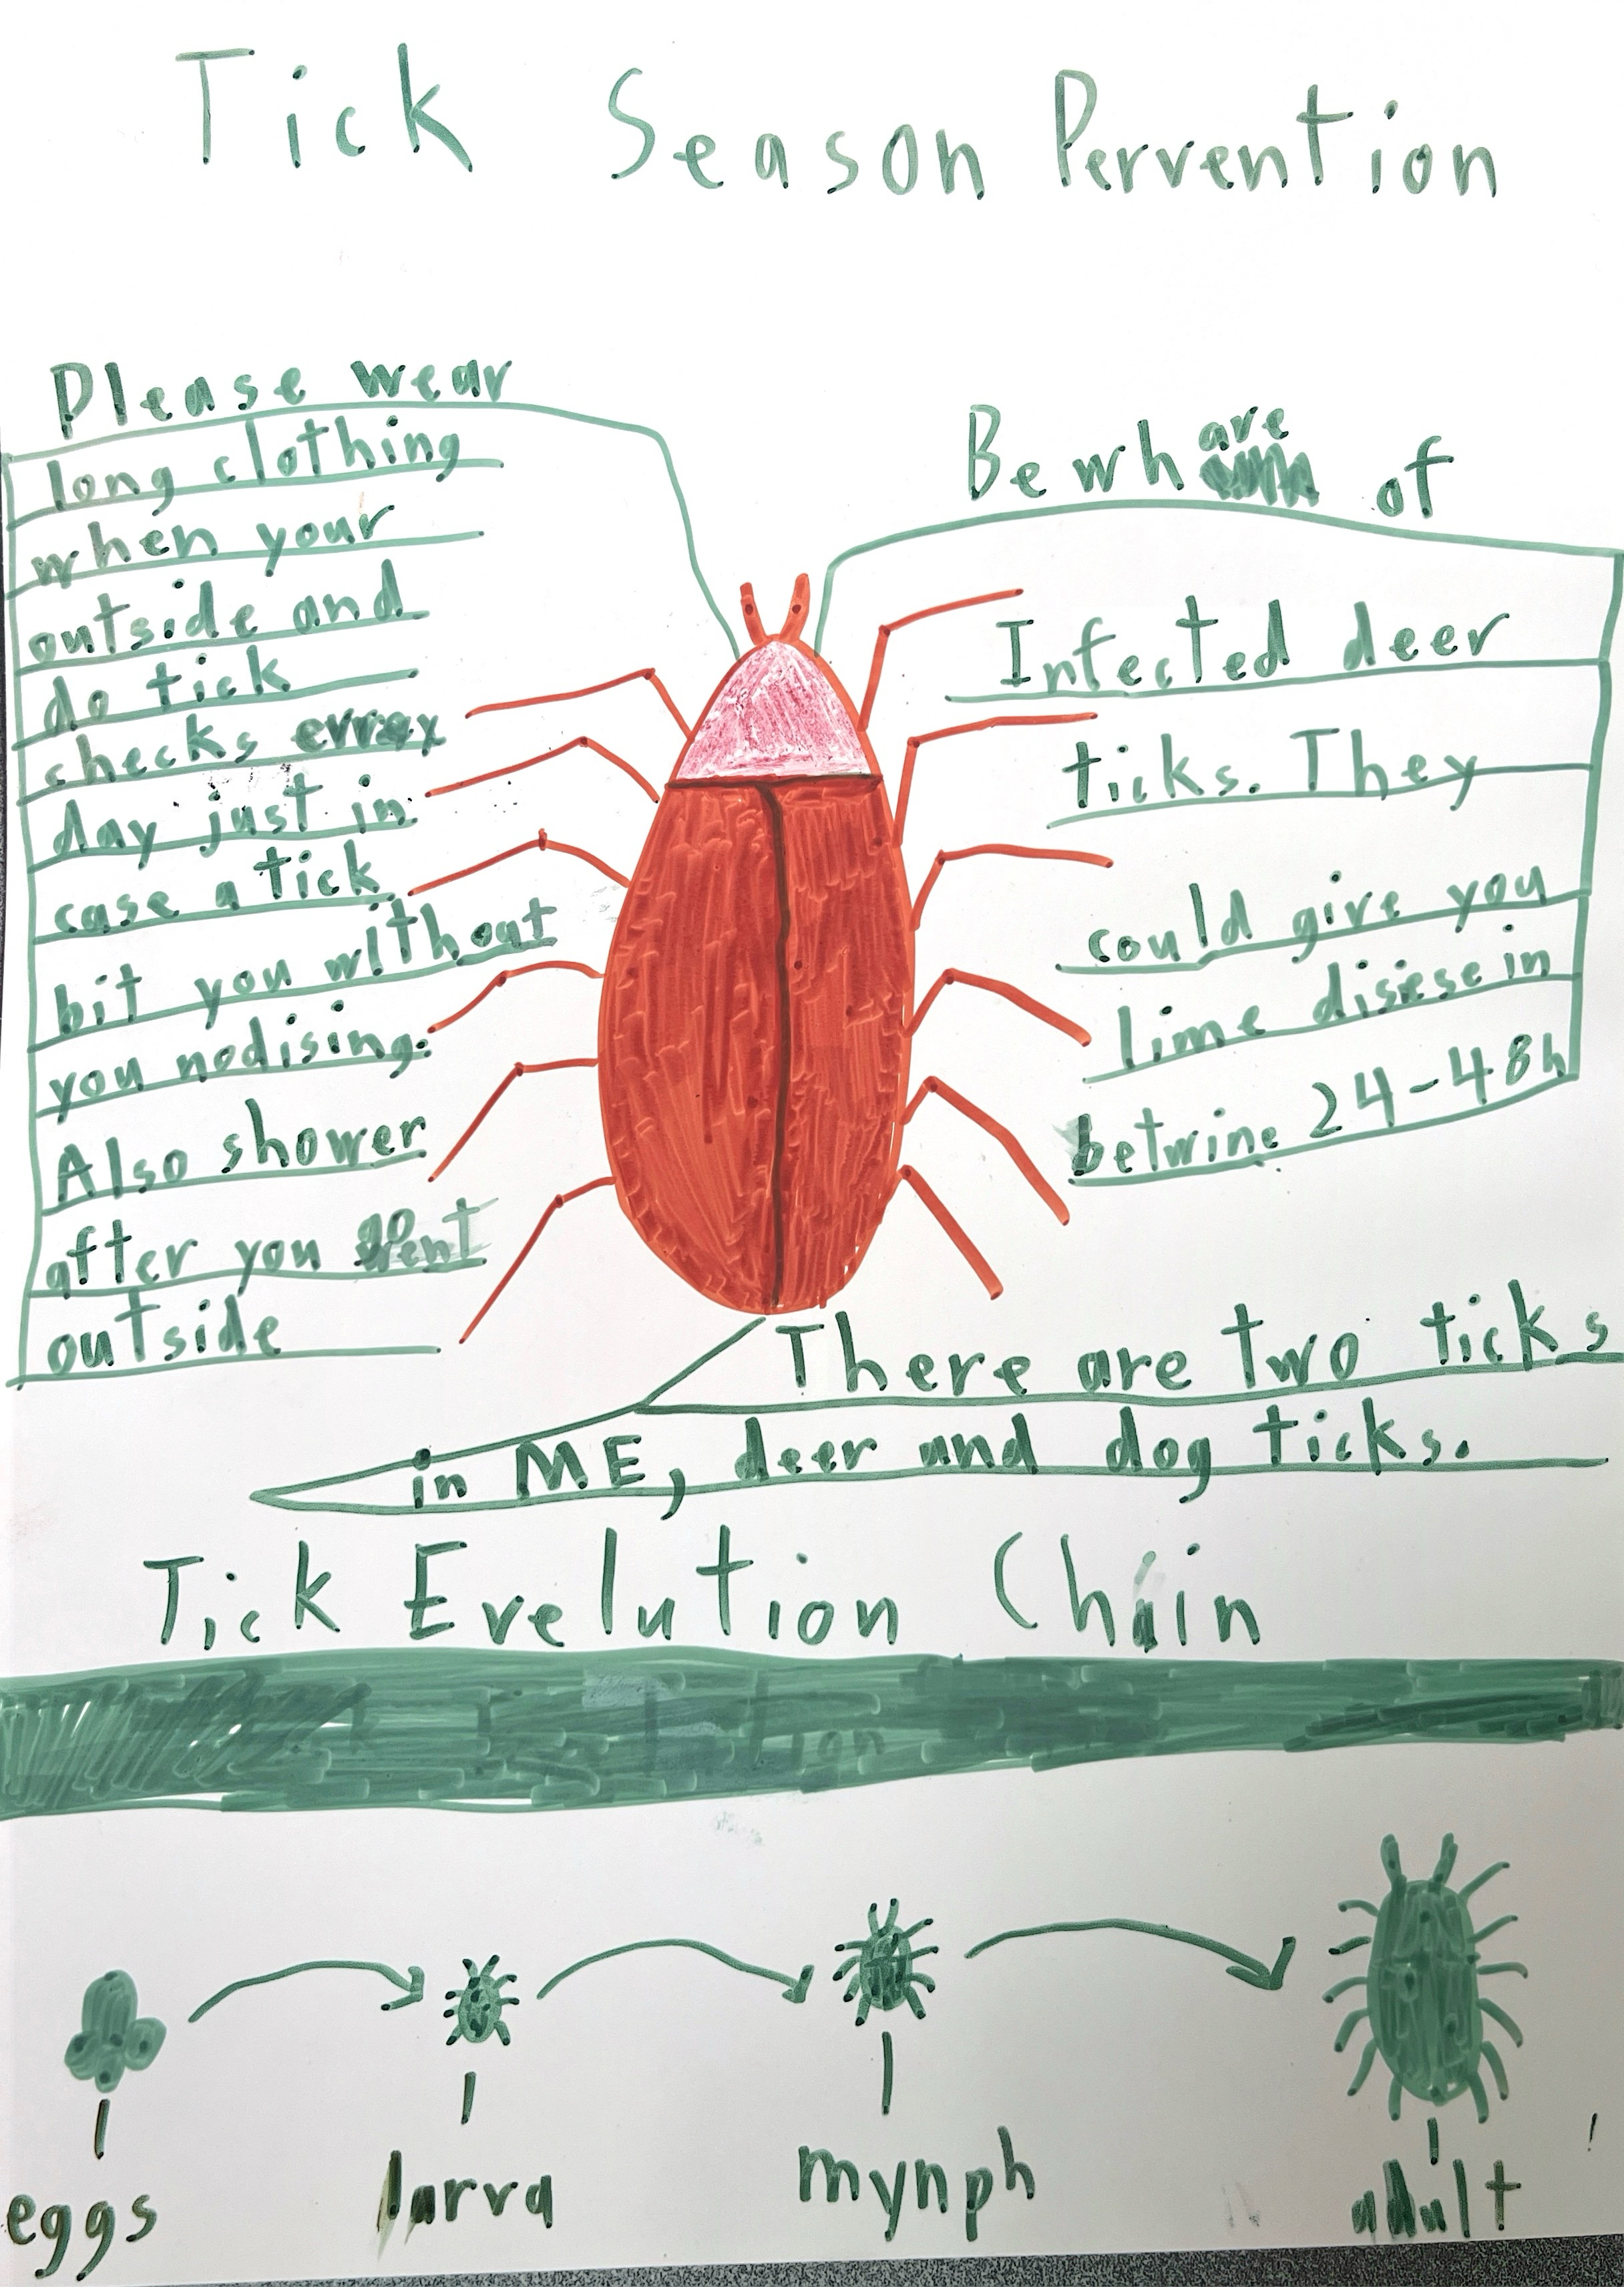 Tick Season Pervention
Please wear
long clothing
when your
outside and
do tick
checks
day just in
case a tick
bit you without
you nodising.
Also shower
after you
outside
Bewhare of
Infected deer
ticks. They
could give you
lime disiese in
betwine 24-48h
There are two ticks
in ME, deer and dog ticks.
Tick Evelution Chain
eggs
larva
mynph
adult